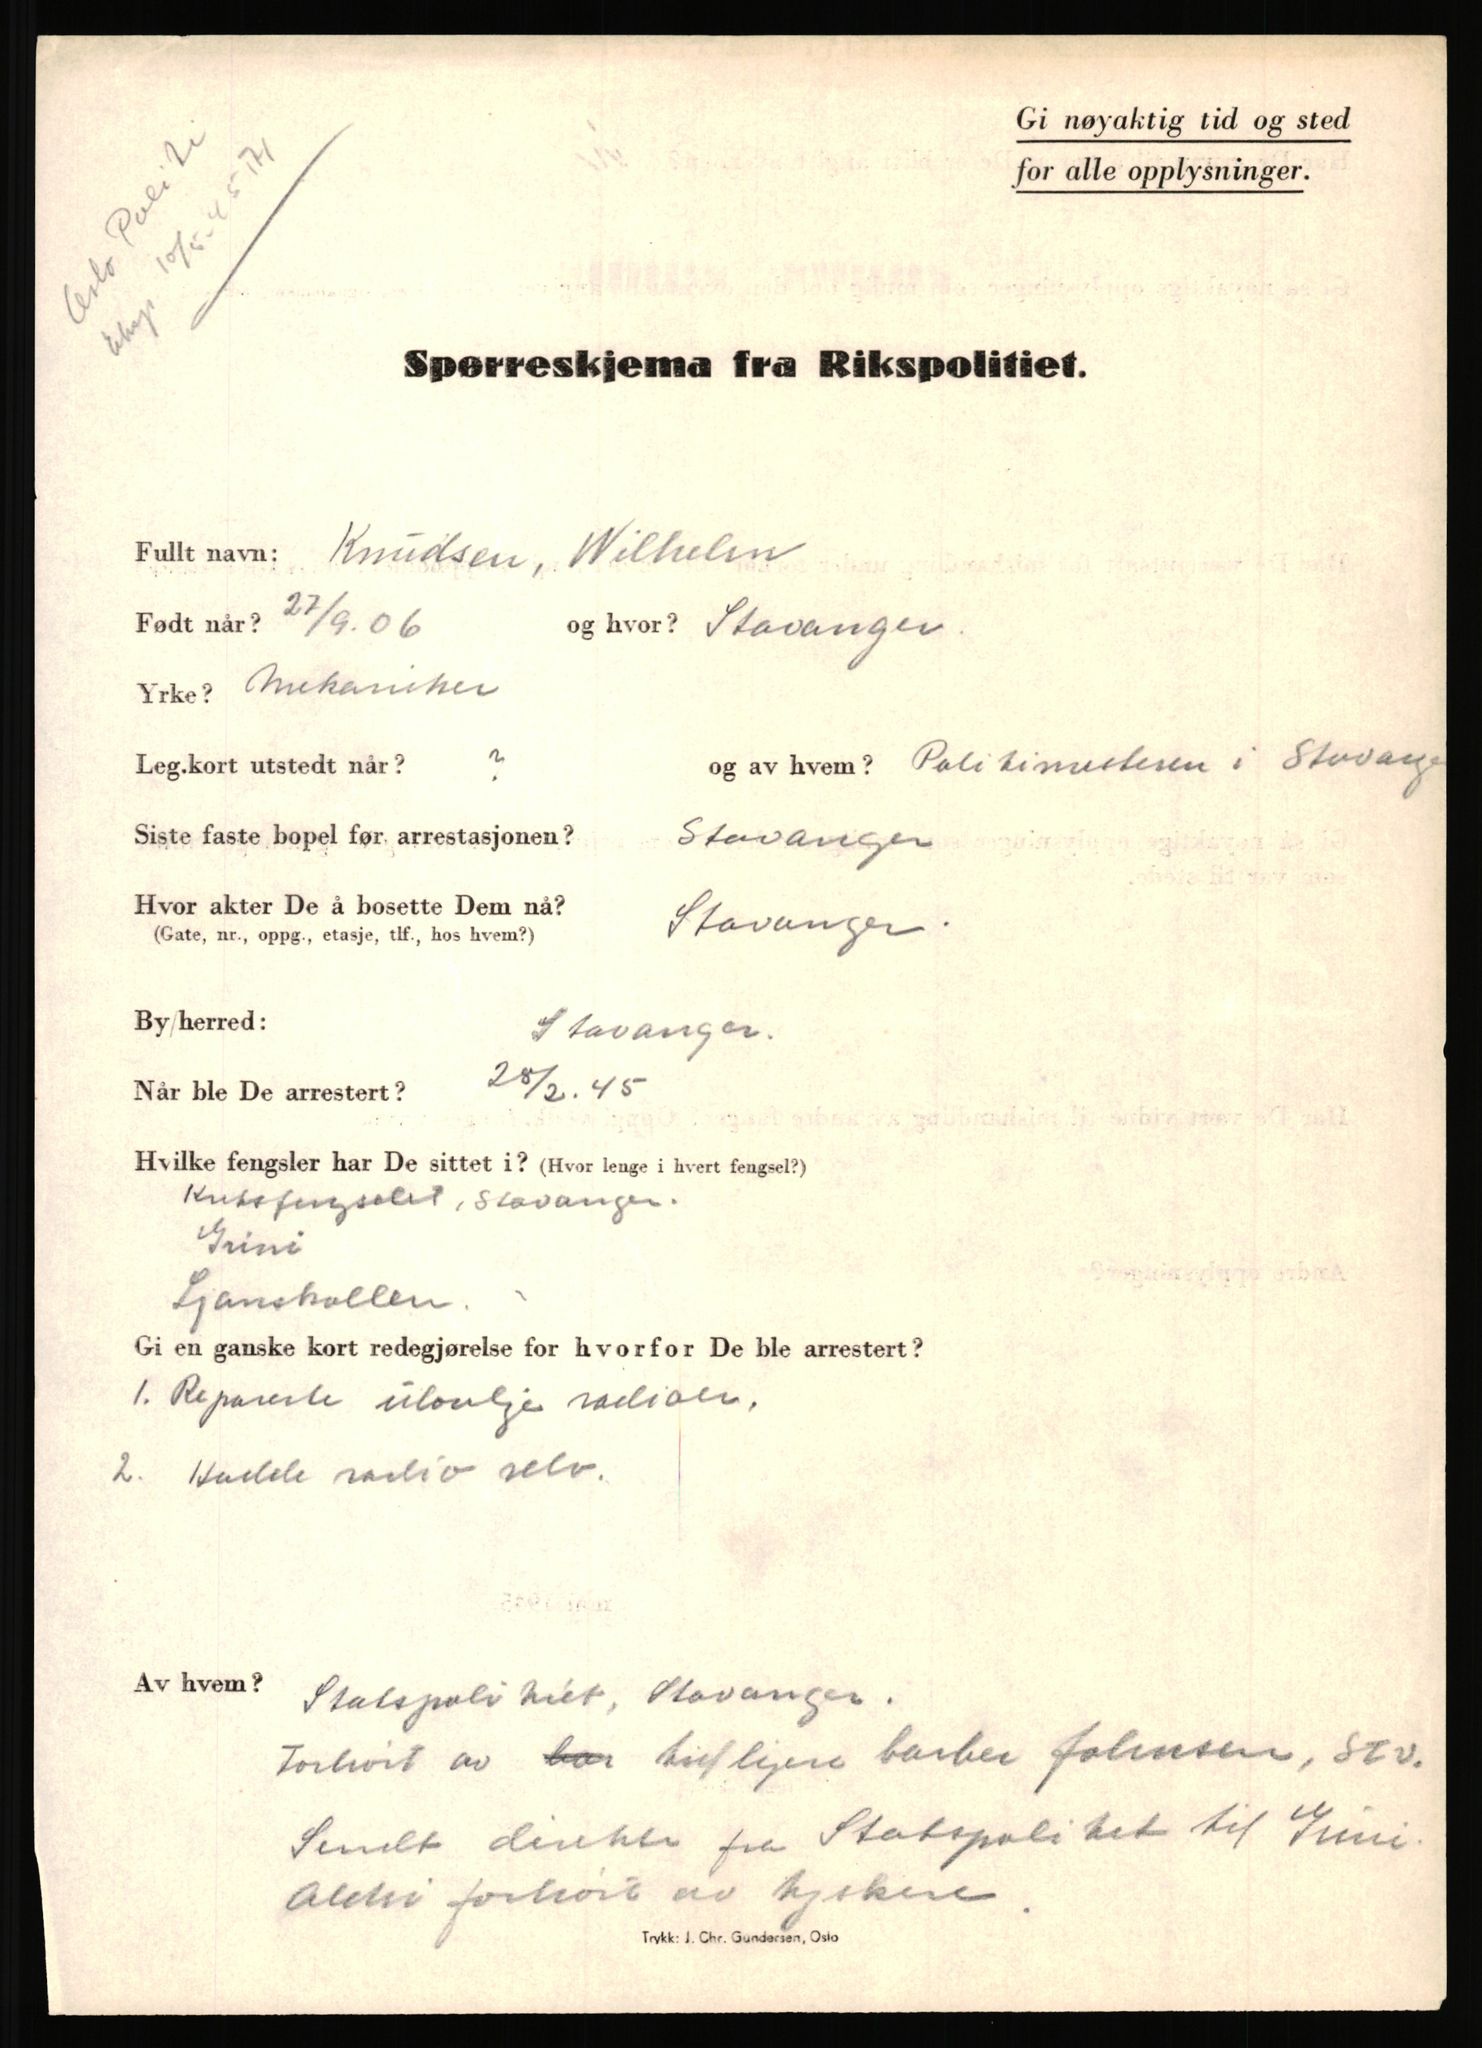 Gi nøyaktig tid og sted
for alle opplysninger.
Oslo Politi
10/5.45
Spørreskjema fra Rikspolitiet.
Fullt navn: Knudsen, Wilhelm
Født når? 27/9.06 og hvor? Stavanger.
Yrke? Mekaniker
Leg.kort utstedt når? ? og av hvem? Politimesteren i Stavange
Siste faste bopel før arrestasjonen? Stavanger
Hvor akter De å bosette Dem nå? Stavanger.
(Gate, nr., oppg., etasje, tlf., hos hvem?)
By/herred: Stavanger.
Når ble De arrestert? 28/2.45
Hvilke fengsler har De sittet i? (Hvor lenge i hvert fengsel?)
Kretsfengselet, Stavanger.
Grini
Ljanskollen.
Gi en ganske kort redegjørelse for hvorfor De ble arrestert?
1. Reparerte ulovlige radioer.
2. Hadde radio selv.
Av hvem? Statspolitiet, Stavanger.
Forhørt av tidligere barber Johnsen, Stv.
Sendt direkte fra Statspolitiet til Grini.
Aldri forhørt av tyskere.
Trykk: J. Chr. Gundersen, Oslo